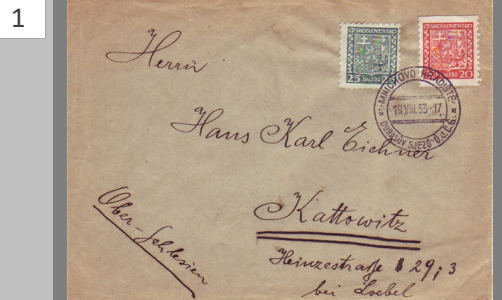 1
ČESKOSLOVENSKO
25 HALÉŘŮ
ČESKOSLOVENSKO
HALÉŘŮ 20
MNICHOVO HRADIŠTĚ
19.VIII.33-17
SJEZD
Herrn
Hans Karl Eichner
Kattowitz
Ober-Schlesien
Heinzestraße 29, 3
bei Loebel